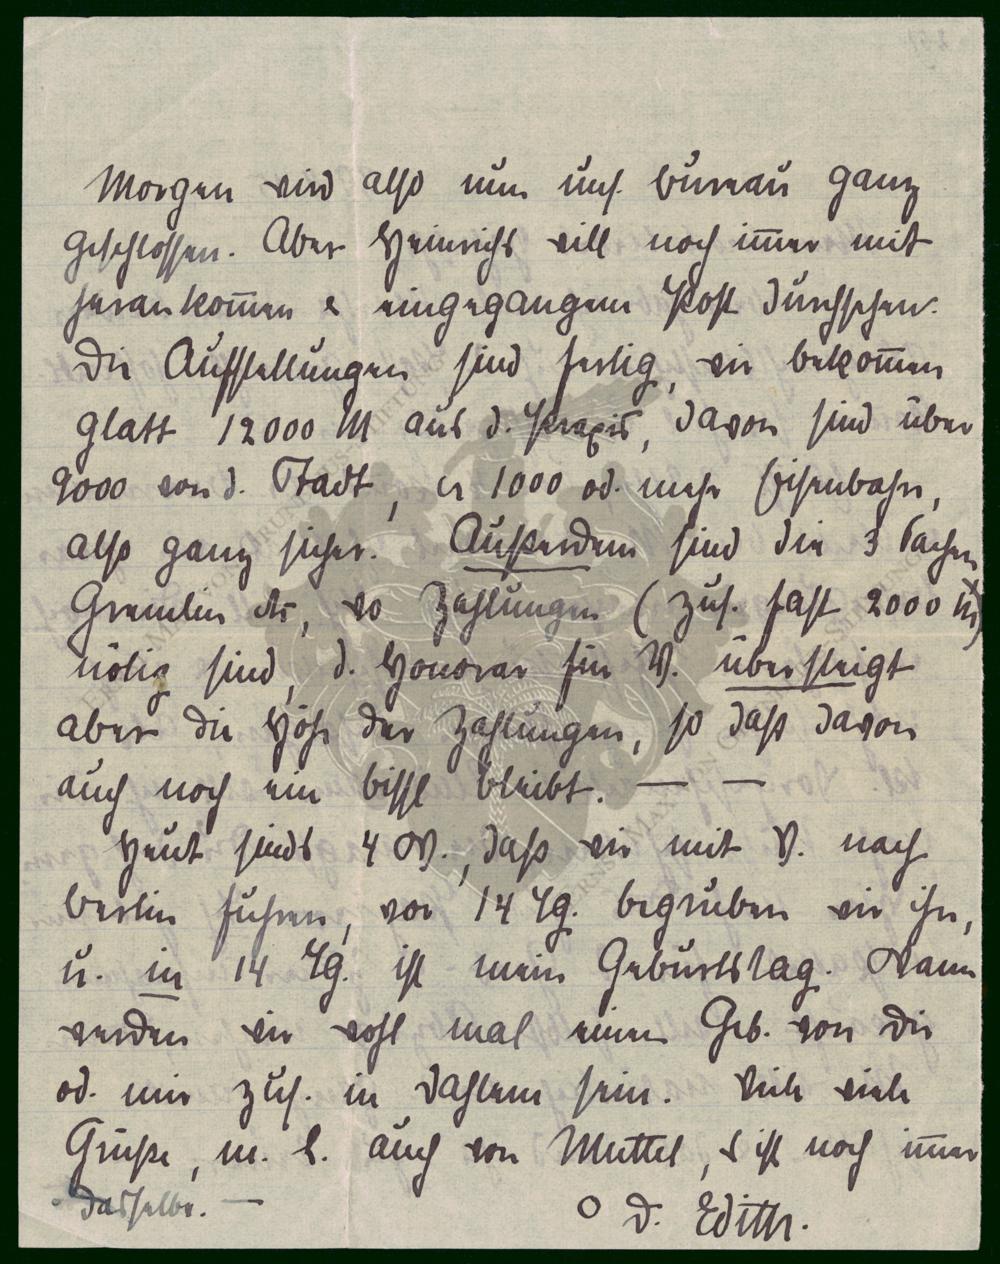 Morgen wird also nun uns. Bureau ganz
geschlossen. Aber Heinrichs will noch im̄er mit
heran kom̄en & eingegangene Post durchsehen.
Die Aufstellungen sind fertig, wir bekom̄en
glatt 12000 M aus d. Praxis, davon sind über
9000 von d. Stadt, 1000 od. mehr Eisenbahn,
also ganz sicher. Außerdem sind die 3 Sachen
wo Zahlungen (zus. fast 2000 M)
nötig sind, d. Honorar für V. übersteigt
aber die Höhe der Zahlungen, so daß davon
auch noch ein bissl bleibt. — —
Heut sinds 4 W., daß wir mit V. nach
Berlin fuhren, vor 14 Tg. begruben wir ihn,
u. in 14 Tg. ist mein Geburtstag. Dann
werden wir wohl mal einen Geb. von Dir
od. mir zus. in Dahlem sein. Viele viele
Grüße, m. l. auch von Muttel, s' ist noch im̄er
dasselbe. —
O D. Edith.